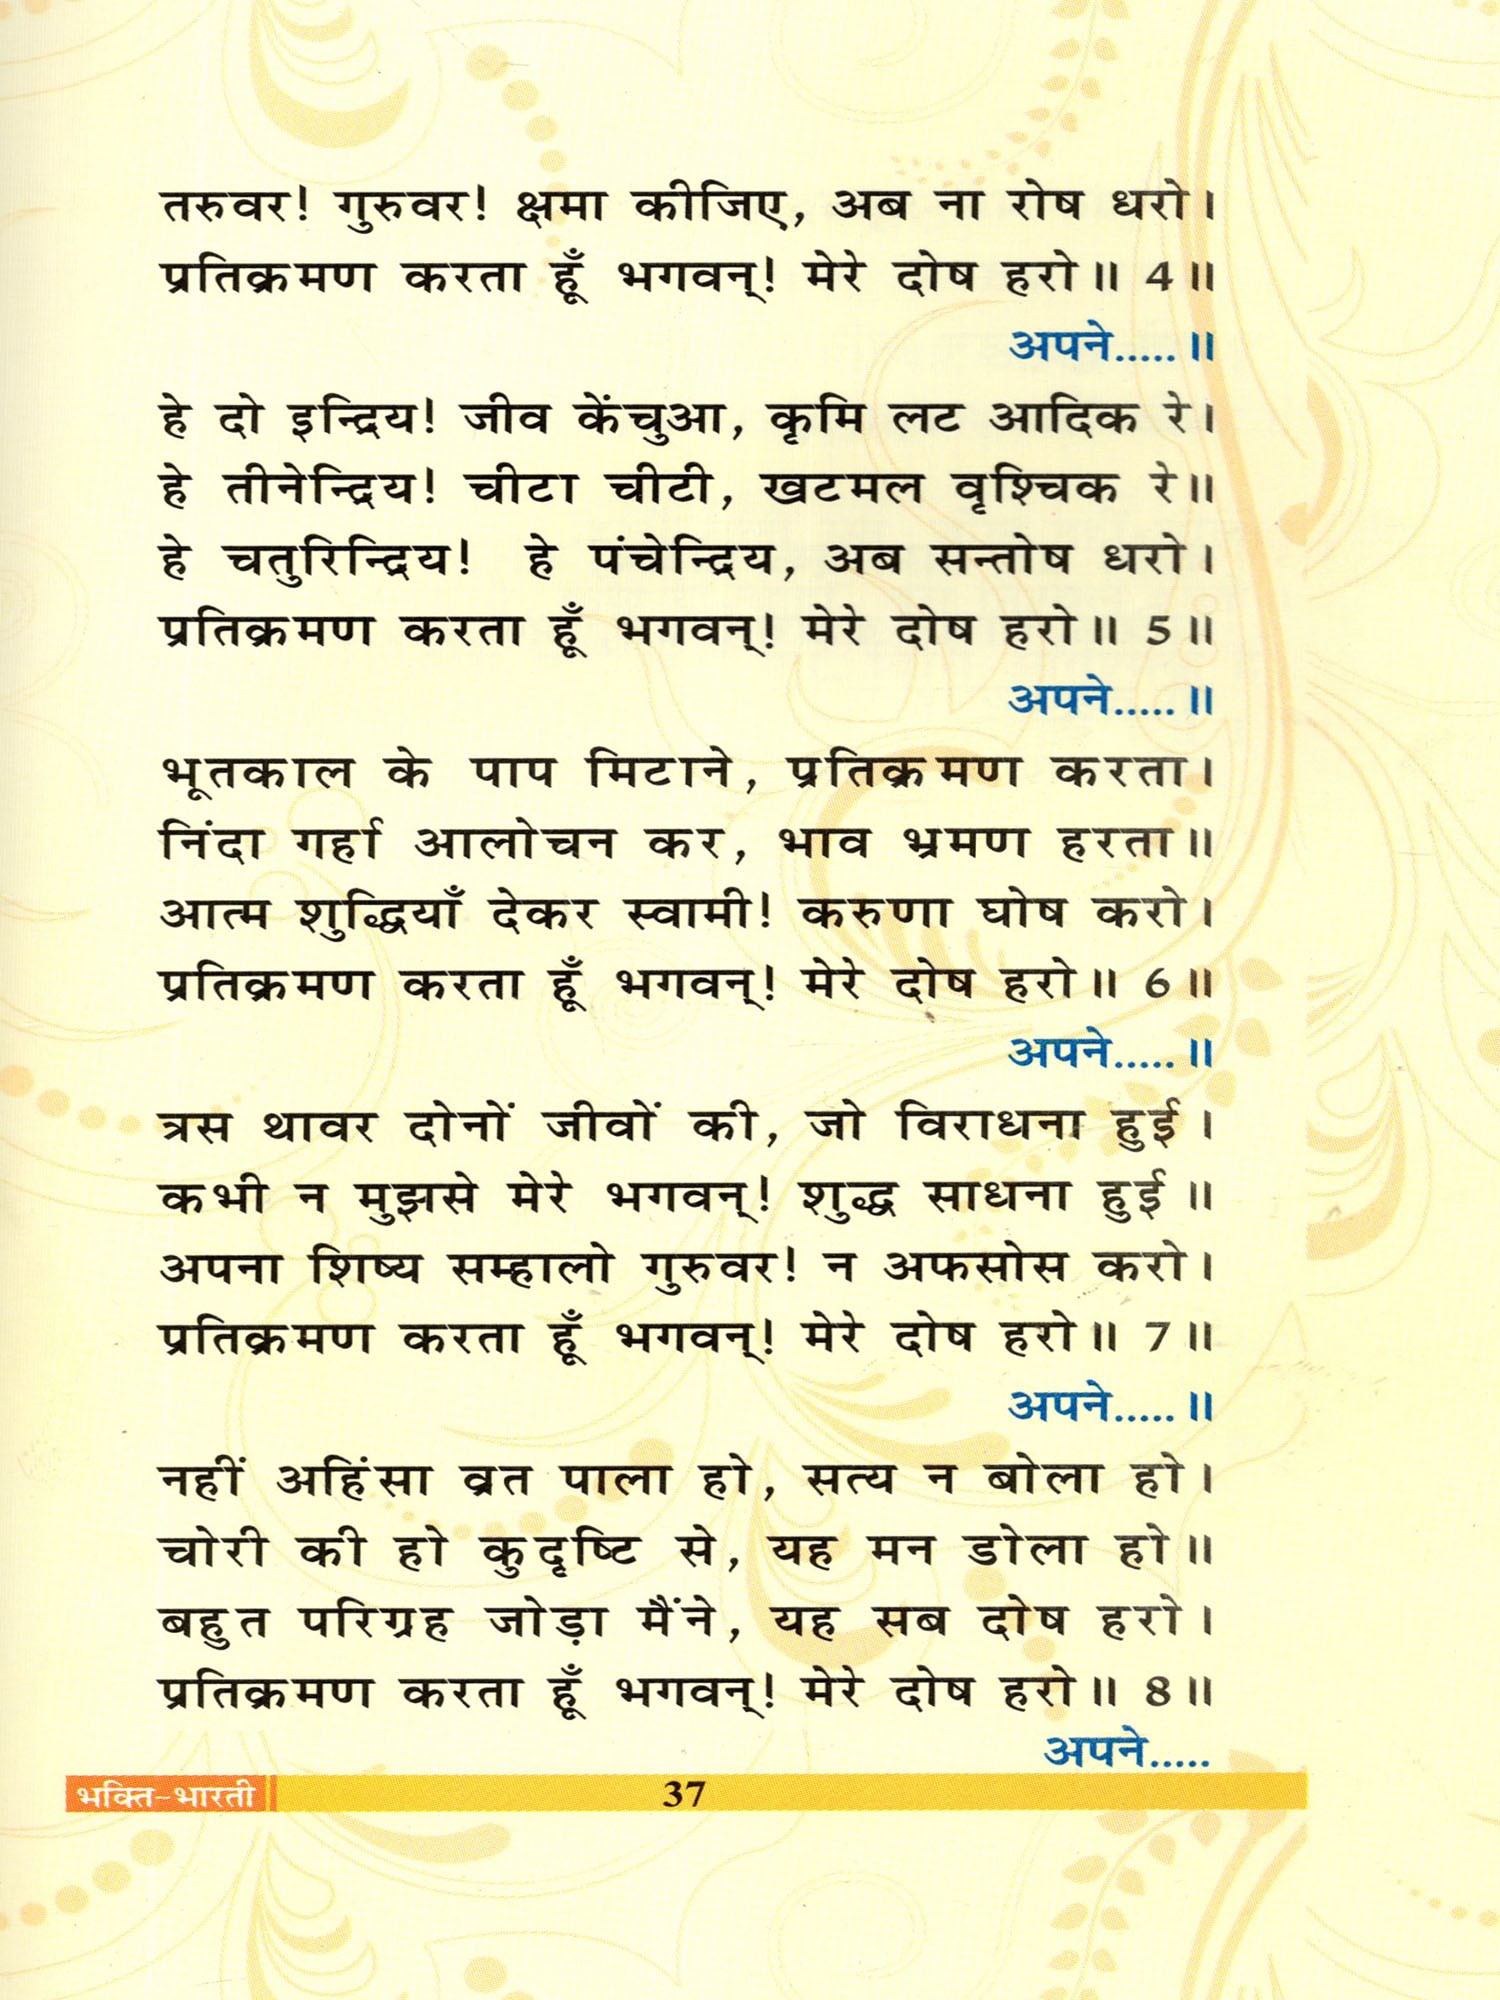 तरुवर! गुरुवर! क्षमा कीजिए, अब ना रोष धरो।
प्रतिक्रमण करता हूँ भगवन्! मेरे दोष हरो॥ 4॥
अपने.....॥
हे दो इन्द्रिय! जीव केंचुआ, कृमि लट आदिक रे।
हे तीनेन्द्रिय! चीटा चीटी, खटमल वृश्चिक रे॥
हे चतुरिन्द्रिय! हे पंचेन्द्रिय, अब सन्तोष धरो।
प्रतिक्रमण करता हूँ भगवन्! मेरे दोष हरो॥ 5॥
अपने.....॥
भूतकाल के पाप मिटाने, प्रतिक्रमण करता।
निंदा गर्हा आलोचन कर, भाव भ्रमण हरता॥
आत्म शुद्धियाँ देकर स्वामी! करुणा घोष करो।
प्रतिक्रमण करता हूँ भगवन्! मेरे दोष हरो॥ 6॥
अपने.....॥
त्रस थावर दोनों जीवों की, जो विराधना हुई।
कभी न मुझसे मेरे भगवन्! शुद्ध साधना हुई॥
अपना शिष्य सम्हालो गुरुवर! न अफसोस करो।
प्रतिक्रमण करता हूँ भगवन्! मेरे दोष हरो॥ 7॥
अपने.....॥
नहीं अहिंसा व्रत पाला हो, सत्य न बोला हो।
चोरी की हो कुदृष्टि से, यह मन डोला हो॥
बहुत परिग्रह जोड़ा मैंने, यह सब दोष हरो।
प्रतिक्रमण करता हूँ भगवन्! मेरे दोष हरो॥ 8॥
अपने.....
भक्ति-भारती 37